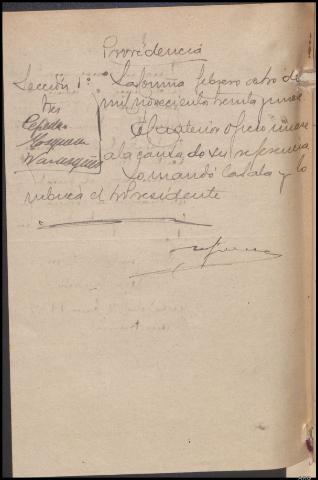 Providencia
Sección 1ª
Tres
Cepeda
Marquina
La Coruña febrero ocho de
mil novecientos treinta y nueve
El anterior oficio únase
a la causa de su referencia
Lo mandó la Sala y lo
rubrica el Presidente